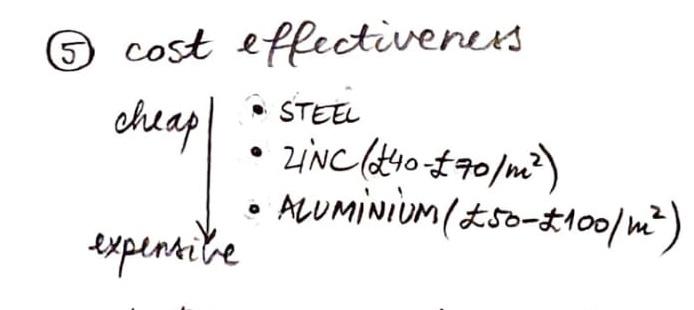 ⑤ cost effectiveness
cheap
• STEEL
• ZINC (£40-£70/m²)
• ALUMINIUM (£50-£100/m²)
expensive